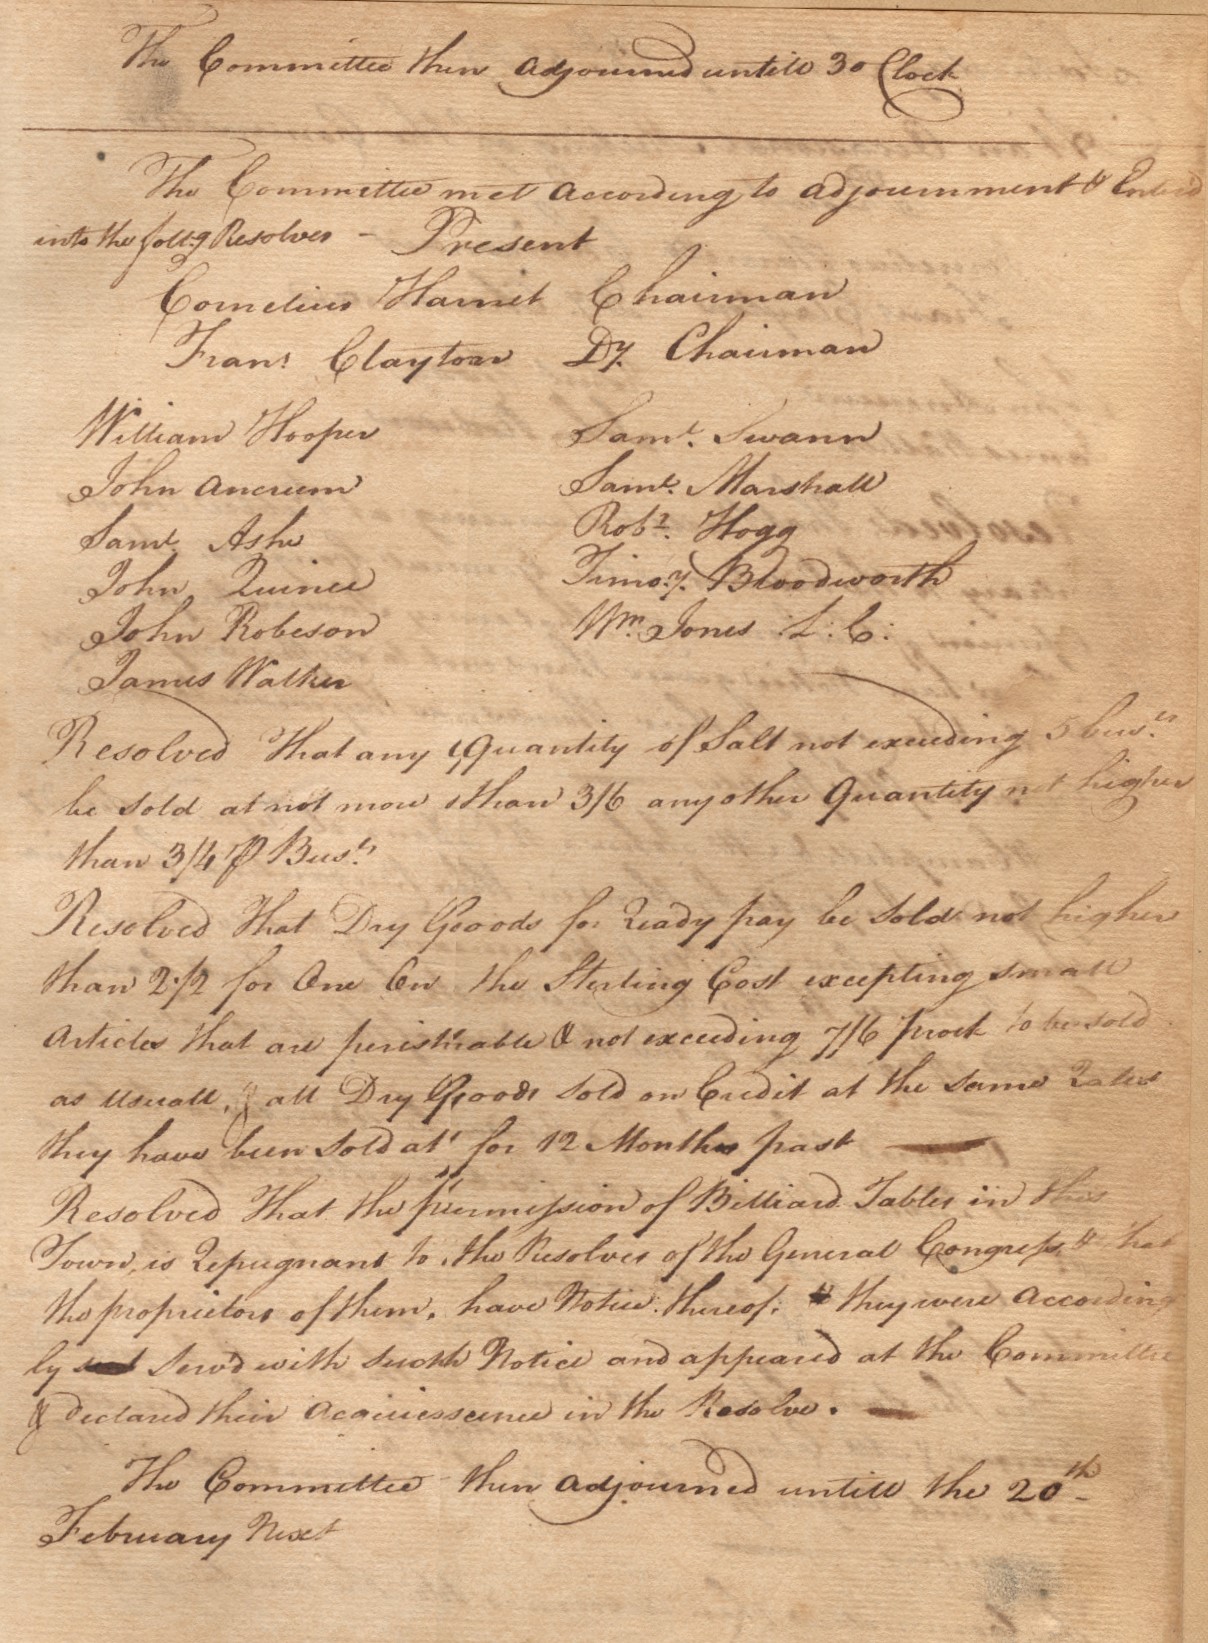 The Committee then adjourned untill 3 o Clock
The Committee met according to adjournment & Entred
into the follg Resolves - Present
Cornelius Harnet Chairman
Frans Clayton Dy. Chairman
William Hooper Saml. Swann
John Ancrum Saml. Marshall
Saml. Ashe Robt. Hogg
John Quince Timoy. Bloodworth
John Robeson Wm. Jones L: C:
James Walker
Resolved That any Quantity of Salt not exceeding 5 busls.
be sold at not more than 3/6 any other Quantity not higher
than 3/4 ⅌ Busl.
Resolved That Dry Goods for Ready pay be Sold not higher
than 2 1/2 for One On the Sterling Cost excepting small
articles that are perishable & not exceeding 7/6 prock to be sold
as Usuall, & all Dry Goods sold on Credit at the same Rates
they have been Sold at for 12 Months past
Resolved That the permission of Billiard Tables in this
Town, is Repugnant to the Resolves of the General Congress, & that
the proprietors of them, have Notice thereof; & they were According
ly Serv'd with such Notice and appeared at the Committee
& declared their Acquiessence in the Resolve.
The Committee then adjourned untill the 20th
February Next